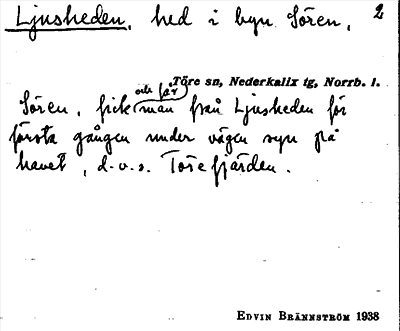 Ljusheden, hed i byn Sören, 2
Töre sn, Nederkalix tg, Norrb. l.
och får
Sören, fick man från Ljusheden för
första gången under vägen syn på
havet, d.v.s. Törefjärden.
EDVIN BRÄNNSTRÖM 1938